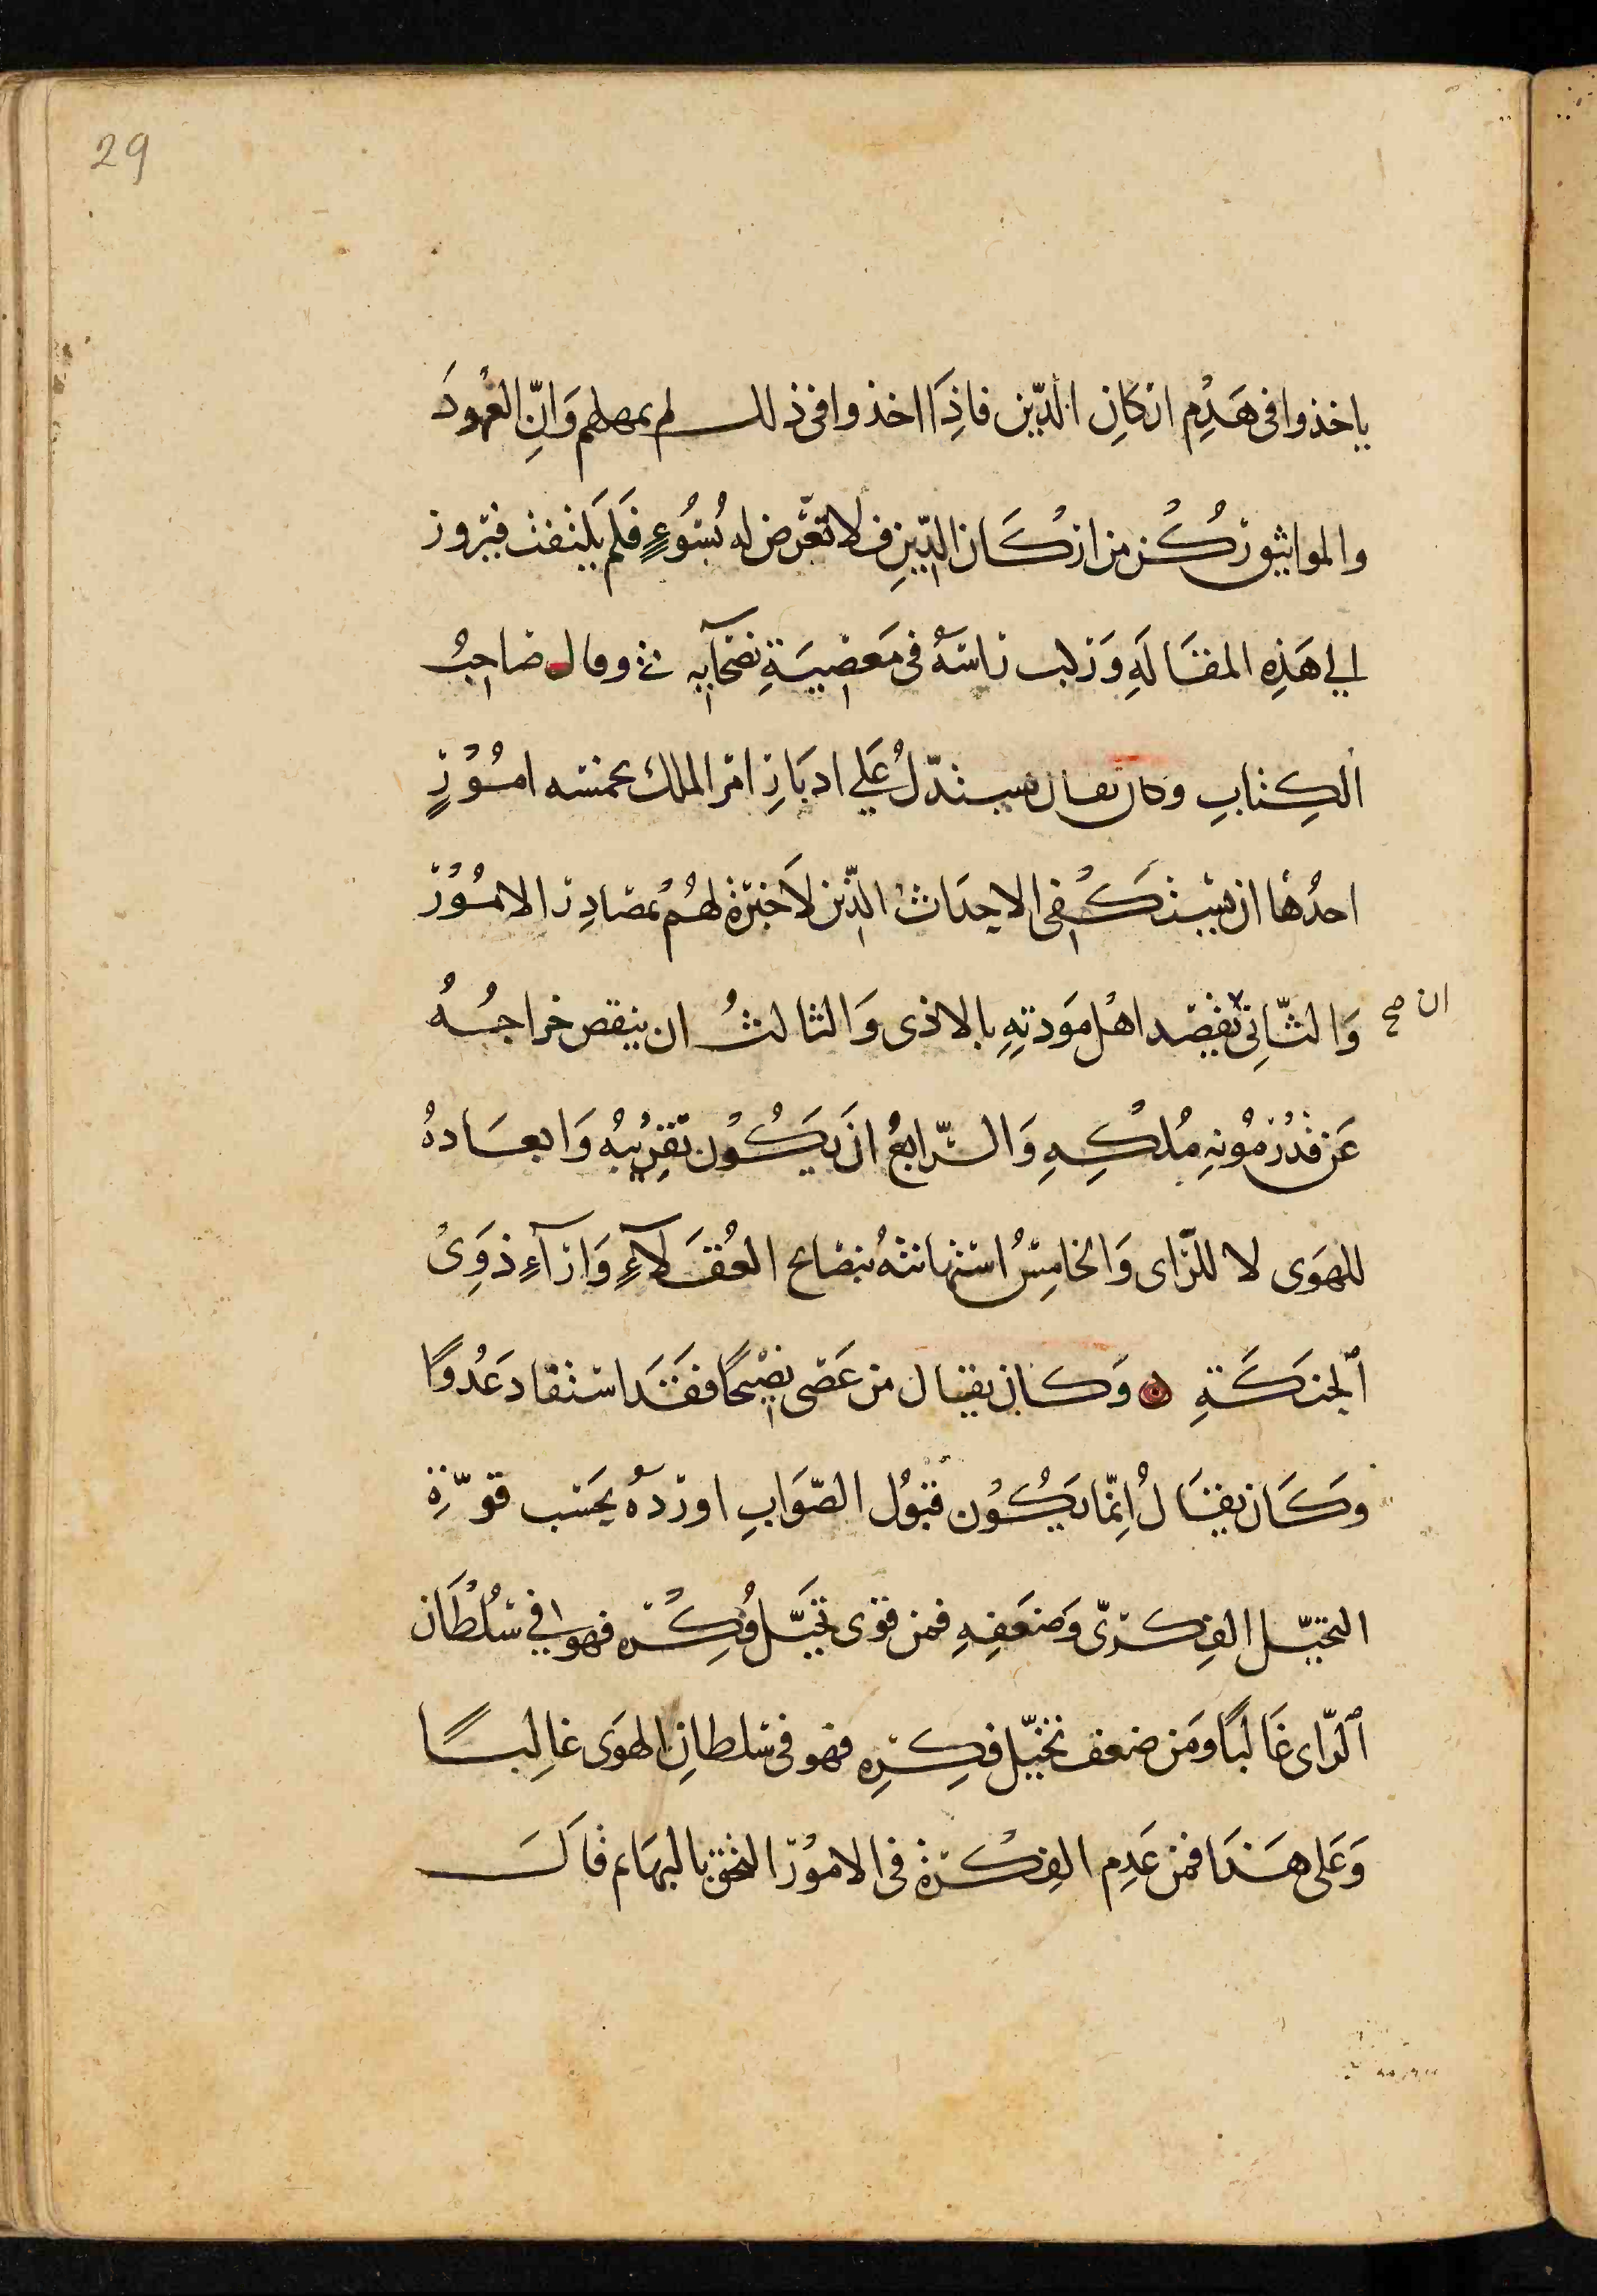 29
ياخذوا فى هَدِم اركانِ الدّين فاذِا اخذوا فى ذلك لم يمهلهم وَانِّ العُهودَ
والمواثيق رُكُن من اركَان الدّينِ فلا تعّرض له بسُوُءٍ فَلم يَلتفت فيروز
الي هَذِه المقَالَةِ وَركب راسَهُ فى مَعصِيَةِ نصَحآيه وقال صَاحِبُ
الكِتابِ وكان يقال يستدّلُ عَلي ادبَارِ امر الملك بخمسه امُوُرٍ
احدُهَا ان يستكُفى الاحدَاث الذّين لاَ خبرة لهُم بمصَادِر الامُوُر
وَالثّانِى يقصد اهْل مَودتِهِ بالاذى وَالثالثُ ان ينقص خراجُهُ
ان صح
عَن قدُر مُونهِ مُلكِهِ وَالرّابعُ ان يَكُوُن تقرِيُبهُ وَابعَادهُ
للهَوى لا للرّاى وَالخامِسُ استهانتهُ بنصَائح العُقَلآءِ وَارآءِ ذوَِى
الحنكَةِ وَكان يقال من عَصَى نصِيْحًا فقَد استفاد عَدُوًا
وكَان يقَالُ اِنّما يَكُوُن قبوُل الصّوَابِ اورَدهُ بحَسب قوّةِ
التخيّل الفِكرىّ وَضعَفِهِ فمن قوى تخَيّل فِكُره فهو فى سُلْطَان
الرّاى غَالبًا ومَن ضعف تخيّل فِكرِه فهو فى سلطانِ الهوَى غالِبًا
وَعَلى هَذا فمن عَدِم الفِكْرة فى الاموُر التحق بالبهَائم قالَ